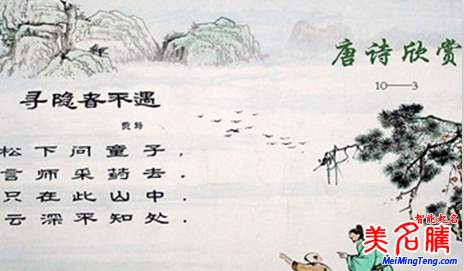 唐诗欣赏
10—3
寻隐者不遇
松下问童子，
言师采药去。
只在此山中，
云深不知处。
智能起名
美名腾
MeiMingTeng.com